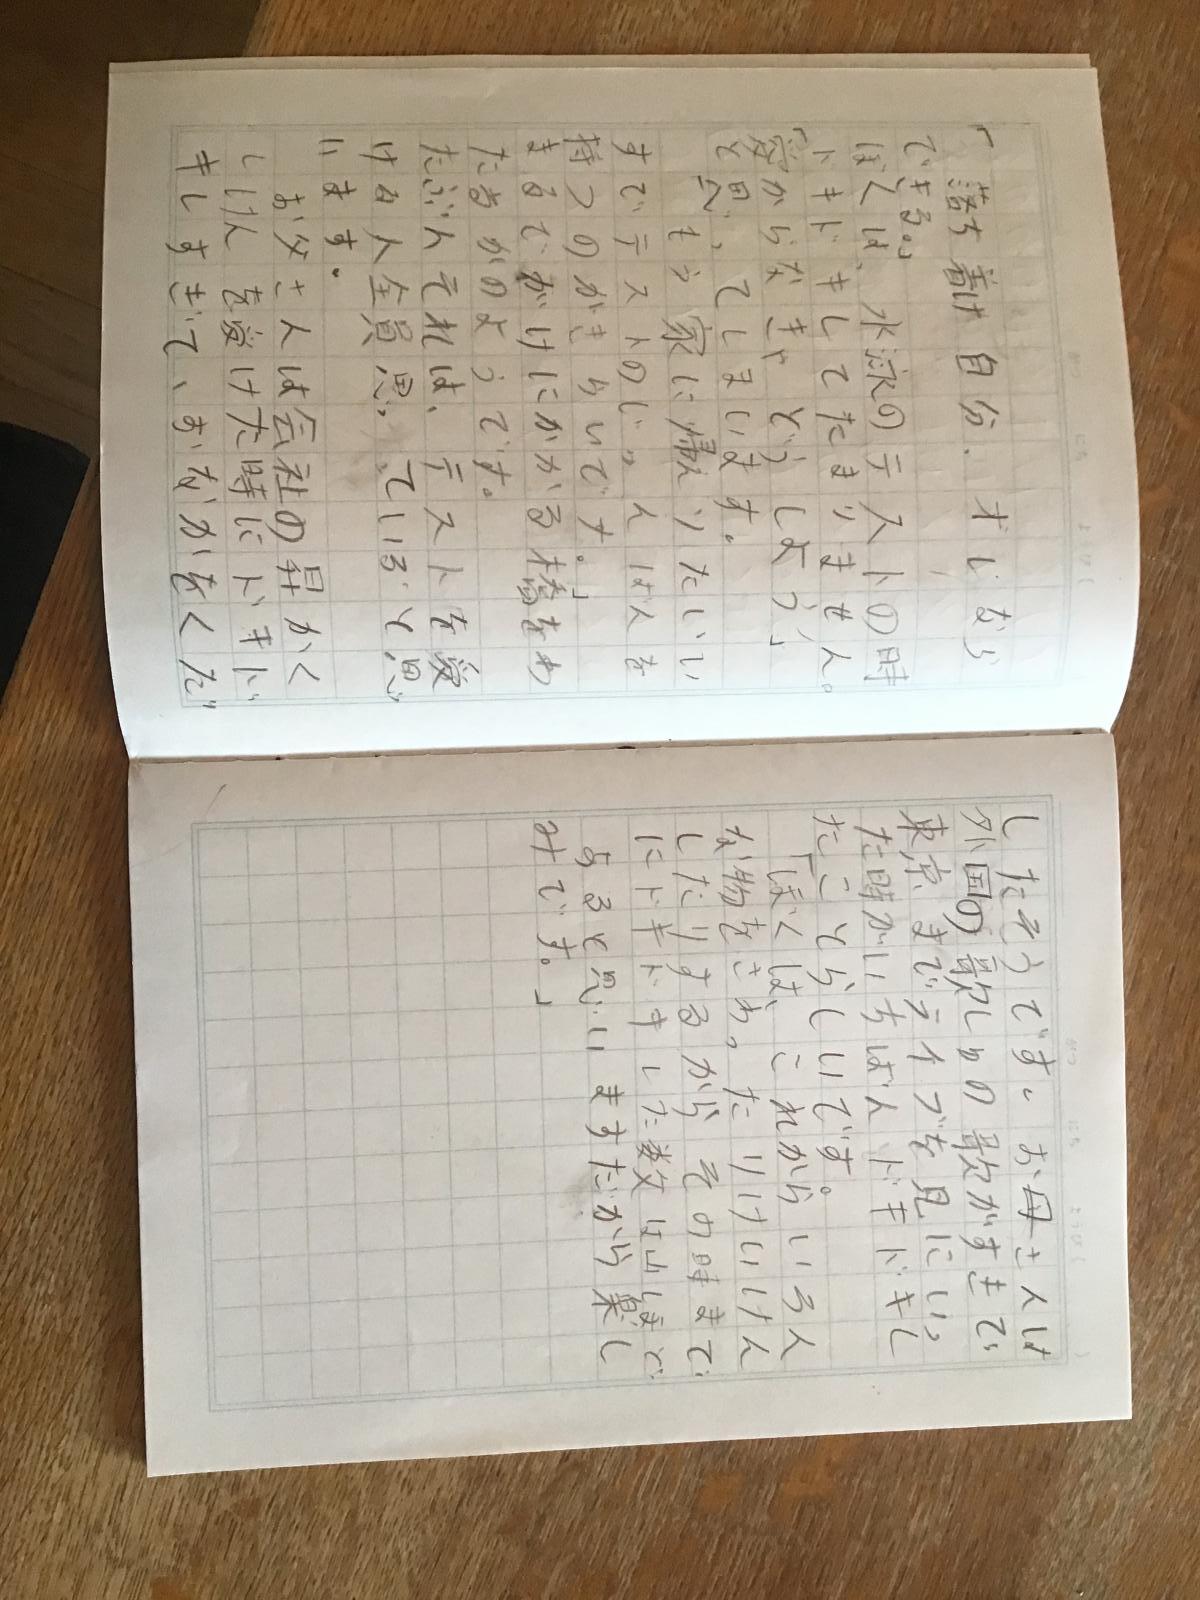 「落ち着け自分。オレなら
できる。」
ぼくは、水泳のテストの時
ドキドキしてたまりません。
「受からなきゃどうしよう」
と思ってしまいます。
もう家に帰りたいい
すでテストのじゅんばんを
持つのがきらいです。」
まるでがけにかかる橋をわ
た者かのようです。
たぶんそれは、テストを受
ける人全員思っていると思
います。
お父さんは会社の昇かく
しけんを受けた時にドキド
キしすぎて、おなかをくだ
したそうです。お母さんは
外国の歌しゅの歌がすきで
東京までライブを見にいっ
た時がいちばんドキドキし
たことらしいです。
「ぼくは、これからいろん
な物をさわったりけいけん
したりするからその時まで
にドキドキした数は山ほど
あると思いますだから楽し
みです。」